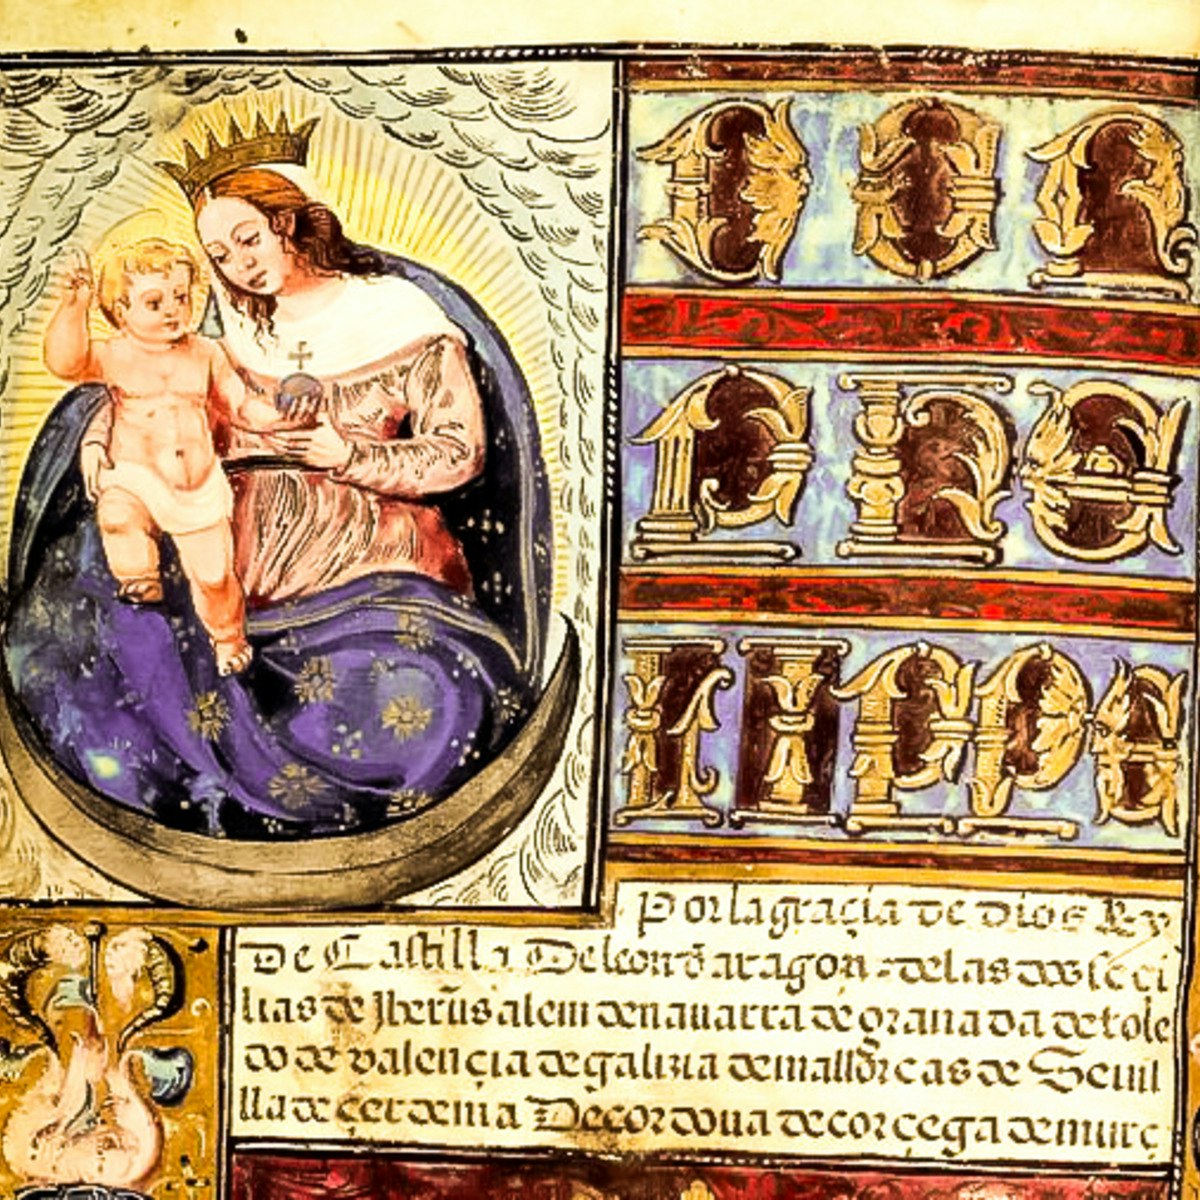 DON
PHE
LIPPE
Por la graçia de dios Rey
De Castilla De leon đ aragon de las dos seci
lias de Jherusalem de nauarra de granada de tole
do de valençia de galizia de mallorcas de Seuil
lla de çerdenia De cordoua de corçega de murç